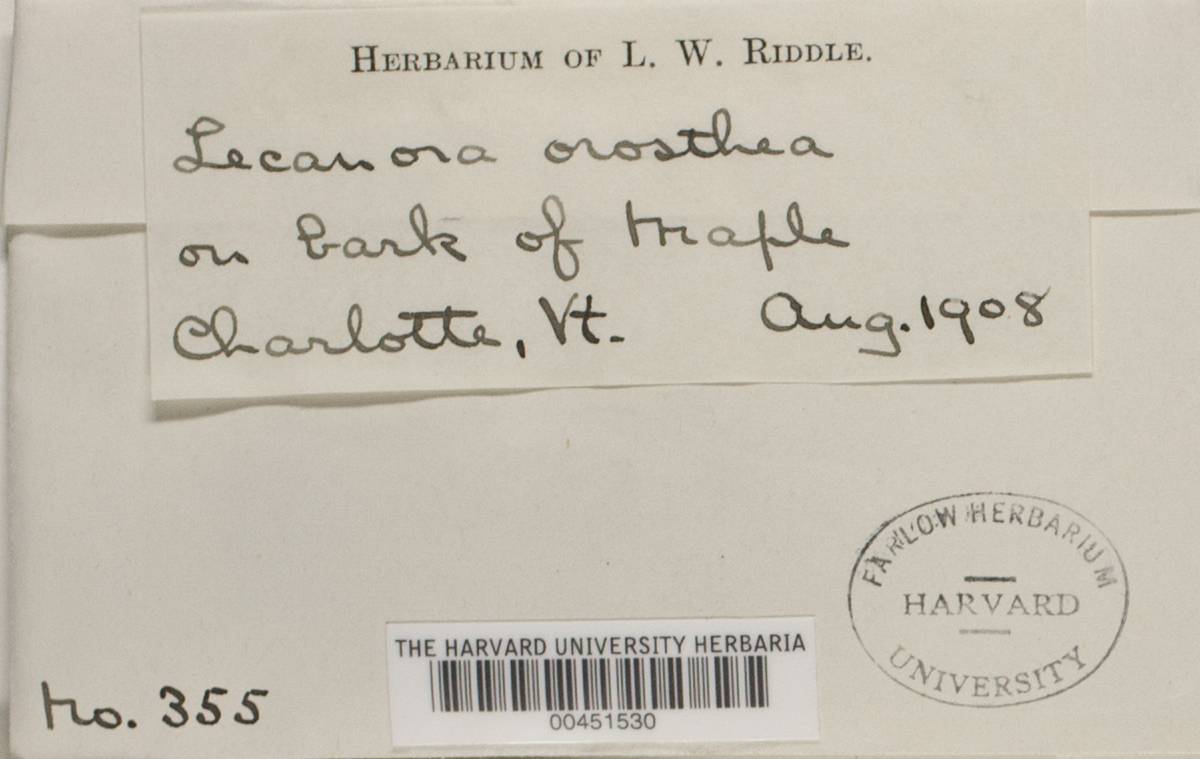 HERBARIUM OF L. W. RIDDLE.
Lecanora orosthea
on bark of Maple
Charlotte, Vt. Aug. 1908
FARLOW HERBARIUM
HARVARD
UNIVERSITY
THE HARVARD UNIVERSITY HERBARIA
00451530
No. 355